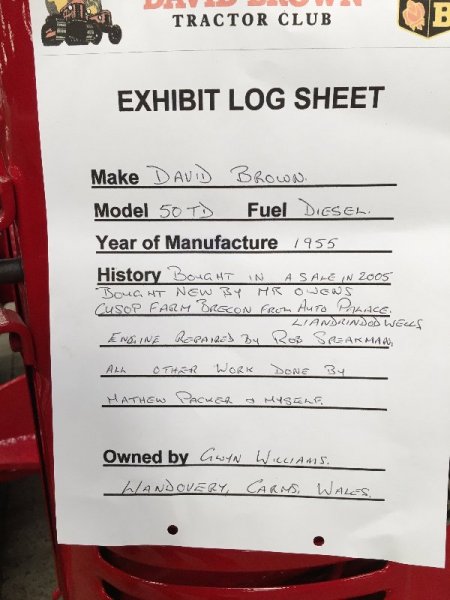 DAVID BROWN
TRACTOR CLUB
B
EXHIBIT LOG SHEET
Make DAVID BROWN.
Model 50TD Fuel DIESEL.
Year of Manufacture 1955
History BOUGHT IN A SALE IN 2005
BOUGHT NEW BY MR OWENS
CUSOP FARM BRECON FROM AUTO PALACE.
LLANDRINDOD WELLS
ENGINE REPAIRED BY ROB SPEAKMAN,
ALL OTHER WORK DONE BY
MATHEW PACKER & MYSELF.
Owned by GWYN WILLIAMS.
LLANDOVERY, CARMS, WALES.